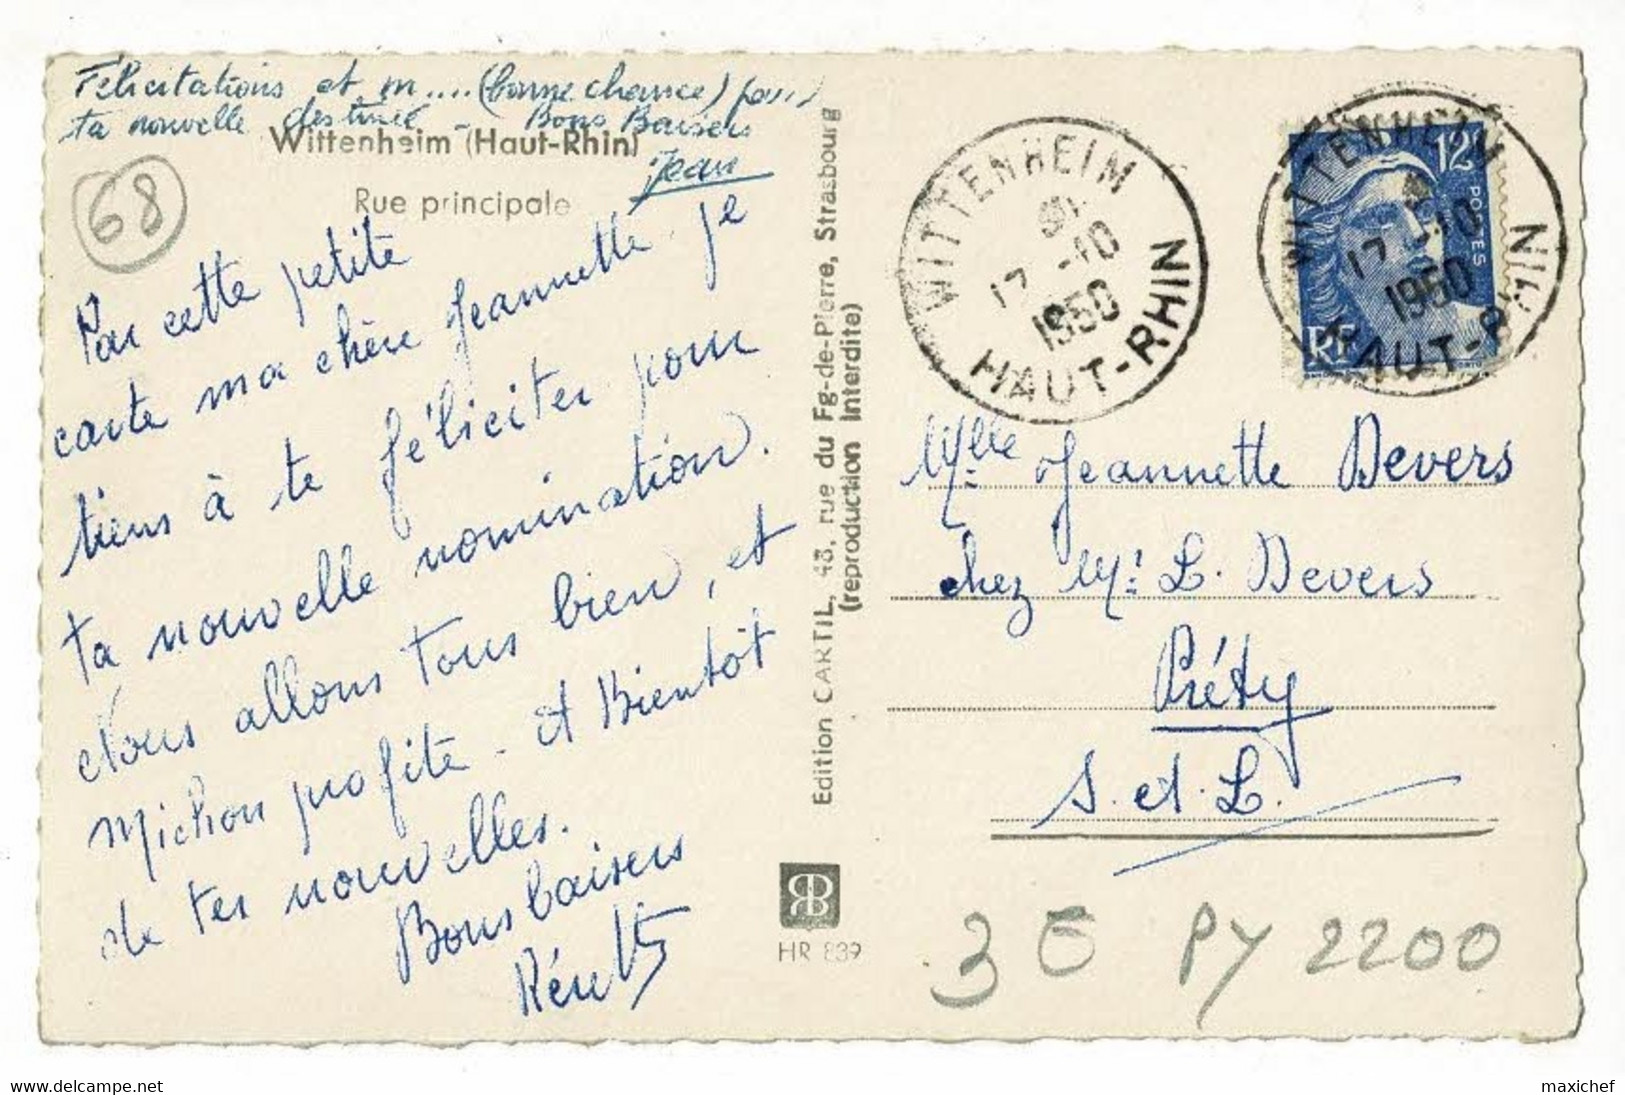 Félicitations et m.... (bonne chance) pour
ta nouvelle destinée - Bons Baisers
Jean
Wittenheim (Haut-Rhin)
Rue principale
68
Par cette petite
carte ma chère Jeannette je
tiens à te féliciter pour
ta nouvelle nomination.
Nous allons tous bien, et
Michou profite - et Bientôt
de tes nouvelles.
Bons baisers
Edition CARTIL, 43, rue du Fg-de-Pierre, Strasbourg
(reproduction Interdite)
HR 839
WITTENHEIM
17 -10
1950
HAUT-RHIN
WITTENHEIM
17 -10
1950
HAUT-RHIN
12F
POSTES
RF
Mlle Jeannette Devers
chez Mr L. Devers
Préty
S. et. L.
3 € PY 2200
www.delcampe.net
maxichef